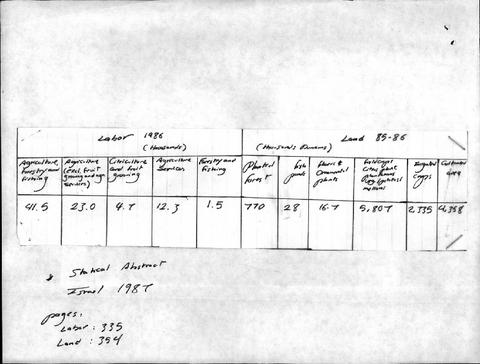 Labor 1986
(thousands)
Land 85-86
(thousands Dunams)
Agriculture, Forestry and fishing
Agriculture (excl. fruit growing and ag services)
Citriculture and fruit growing
Agriculture Services
Forestry and fishing
Planted forest
fish ponds
flowers & Ornamental plants
Irrigated Crops
Cultivated area
41.5 23.0 4.7 12.3 1.5 770 28 16.7 5,807 2,335 4,358
* Statical Abstract
Israel 1987
pages:
Labor: 335
Land: 354